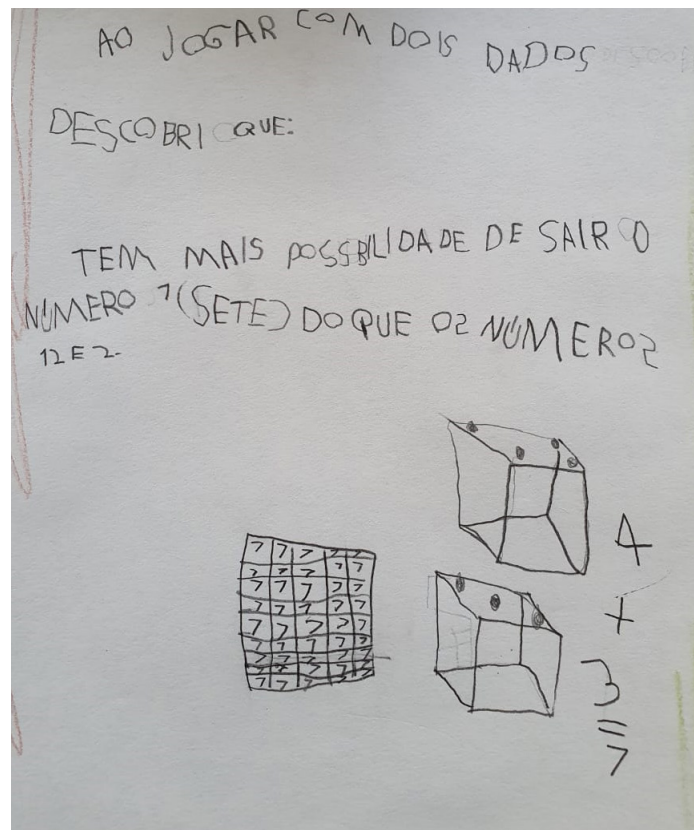 AO JOGAR COM DOIS DADOS
DESCOBRI QUE:
TEM MAIS POSSBILIDADE DE SAIR O
NÚMERO 7 (SETE) DO QUE OS NÚMEROS
12 E 2.
4
+
3
=
7
7 7 7 7 7
7 7 7 7 7
7 7 7 7 7
7 7 7 7 7
7 7 7 7 7
7 7 7 7 7
7 7 7 7 7
7 7 7 7 7